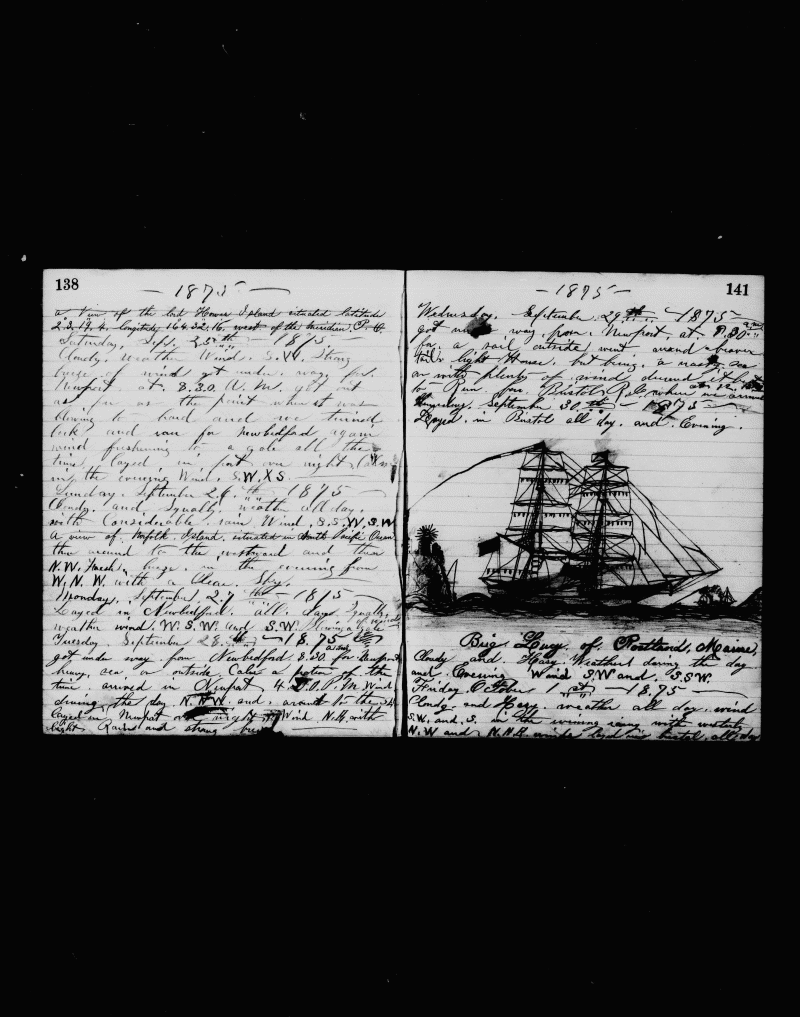 138
— 1875 —
a View of the Lord Howes Island situated latitude
longitude 164.32.16, west of the meridian. P. H.
Saturday, Sept. 25th — 1875 —
Cloudy, weather Wind, S.W, Strong
of wind got under way, for
Newport at 8.30. A.M. got out
as far as the point when it was
blowing to hard and we turned
back and ran for newbedford again
wind freshening to a gale all the
time, layed, in, port over night,
in the evening Wind, S.W.XS
Sunday. September 26th — 1875 —
Cloudy. and Squally, weath all day.
with Considerable, rain, Wind, S.S.W, S.W
a view of Norfolk, Island, situated in South Pacific Ocean
then around to the westward and then
N.W, fresh, in the evening from
W, N. W. with a Clear, Sky,
Monday, September 27th — 1875 —
Layed in Newbedford. all. day Squally,
weather wind. W. S. W. and S.W. blowing a gale of wind
Tuesday, September 28th — 1875
got under way from Newbedford 8.30 for Newport
heavy, sea on outside Calm a potion of the
time arrived in Newport 4.20. P. M. Wind
during the day N. W. and, around to the
layed in Newport over night, Wind N.E, with
light Rain and strong
141
— 1875 —
Wednesday, September 29th — 1875 —
got under way, from Newport, at 8.30 a.m.
for, a sail outside, went around
tail light House, but being, a nasty, sea
on with plenty of wind
to Run for Bristol R.I. where we arrived
Thursday, September 30th — 1875 —
Layed, in Bristol all day, and Evening.
Brig Lucy of Portland, Maine,
Cloudy and Hazy Weather during the day
and Evening Wind S.W and. S.S.W.
Friday October 1st — 1875 —
Cloudy and Hazy, weather all day, wind
S.W. and. S. in the evening rainy with
N. W and N.N.E. layed in bristol, all day